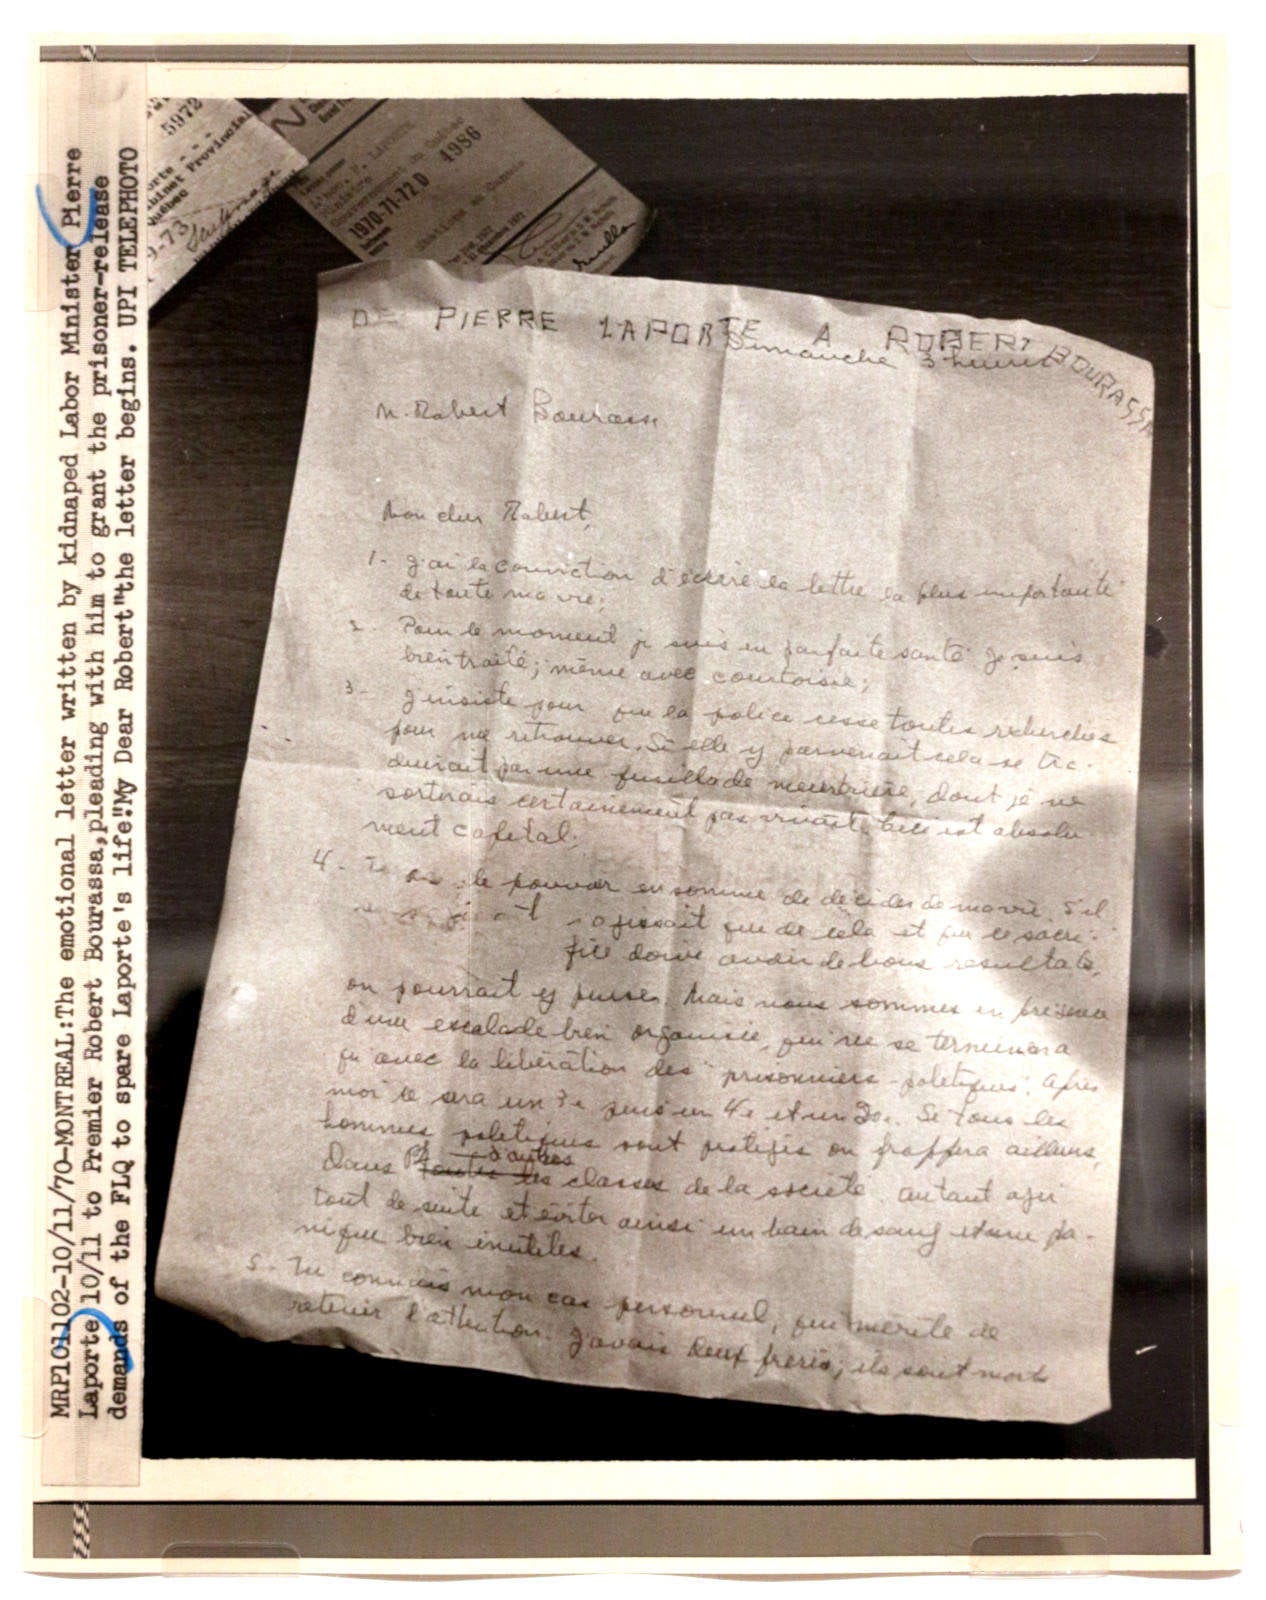 MRP101102-10/11/70-MONTREAL:The emotional letter written by kidnaped Labor Minister Pierre
Laporte 10/11 to Premier Robert Bourassa,pleading with him to grant the prisoner-release
demands of the FLQ to spare Laporte's life."My Dear Robert"the letter begins. UPI TELEPHOTO
5972
Provincial
Québec
9-73
1970-71-72 D 4986
DE PIERRE LAPORTE A ROBERT BOURASSA
Dimanche 3 heures
M. Robert Bourassa
Mon cher Robert,
1- J'ai la conviction d'écrire la lettre la plus importante
de toute ma vie;
2- Pour le moment je suis en parfaite santé. Je suis
bien traité; même avec courtoisie;
3- J'insiste pour que la police cesse toutes recherches
pour me retrouver. Si elle y parvenait cela se tra-
duirait par une fusillade meurtrière, dont je ne
sortirais certainement pas vivant. Ceci est absolu
ment capital;
4- Tu as le pouvoir en somme de décider de ma vie. S'il
s'agissait que de cela et que ce sacri-
fice doive avoir de bons résultats,
on pourrait y penser. Mais nous sommes en présence
d'une escalade bien organisée, qui ne se terminera
qu'avec la libération des "prisonniers politiques". Après
moi ce sera un 3e puis un 4e et un 20e. Si tous les
hommes politiques sont protégés on frappera ailleurs,
dans d'autres
toutes les classes de la société. Autant agir
tout de suite et éviter ainsi un bain de sang et une pa-
nique bien inutiles.
5- Tu connais mon cas personnel, qui mérite de
retenir l'attention. J'avais deux frères; ils sont morts